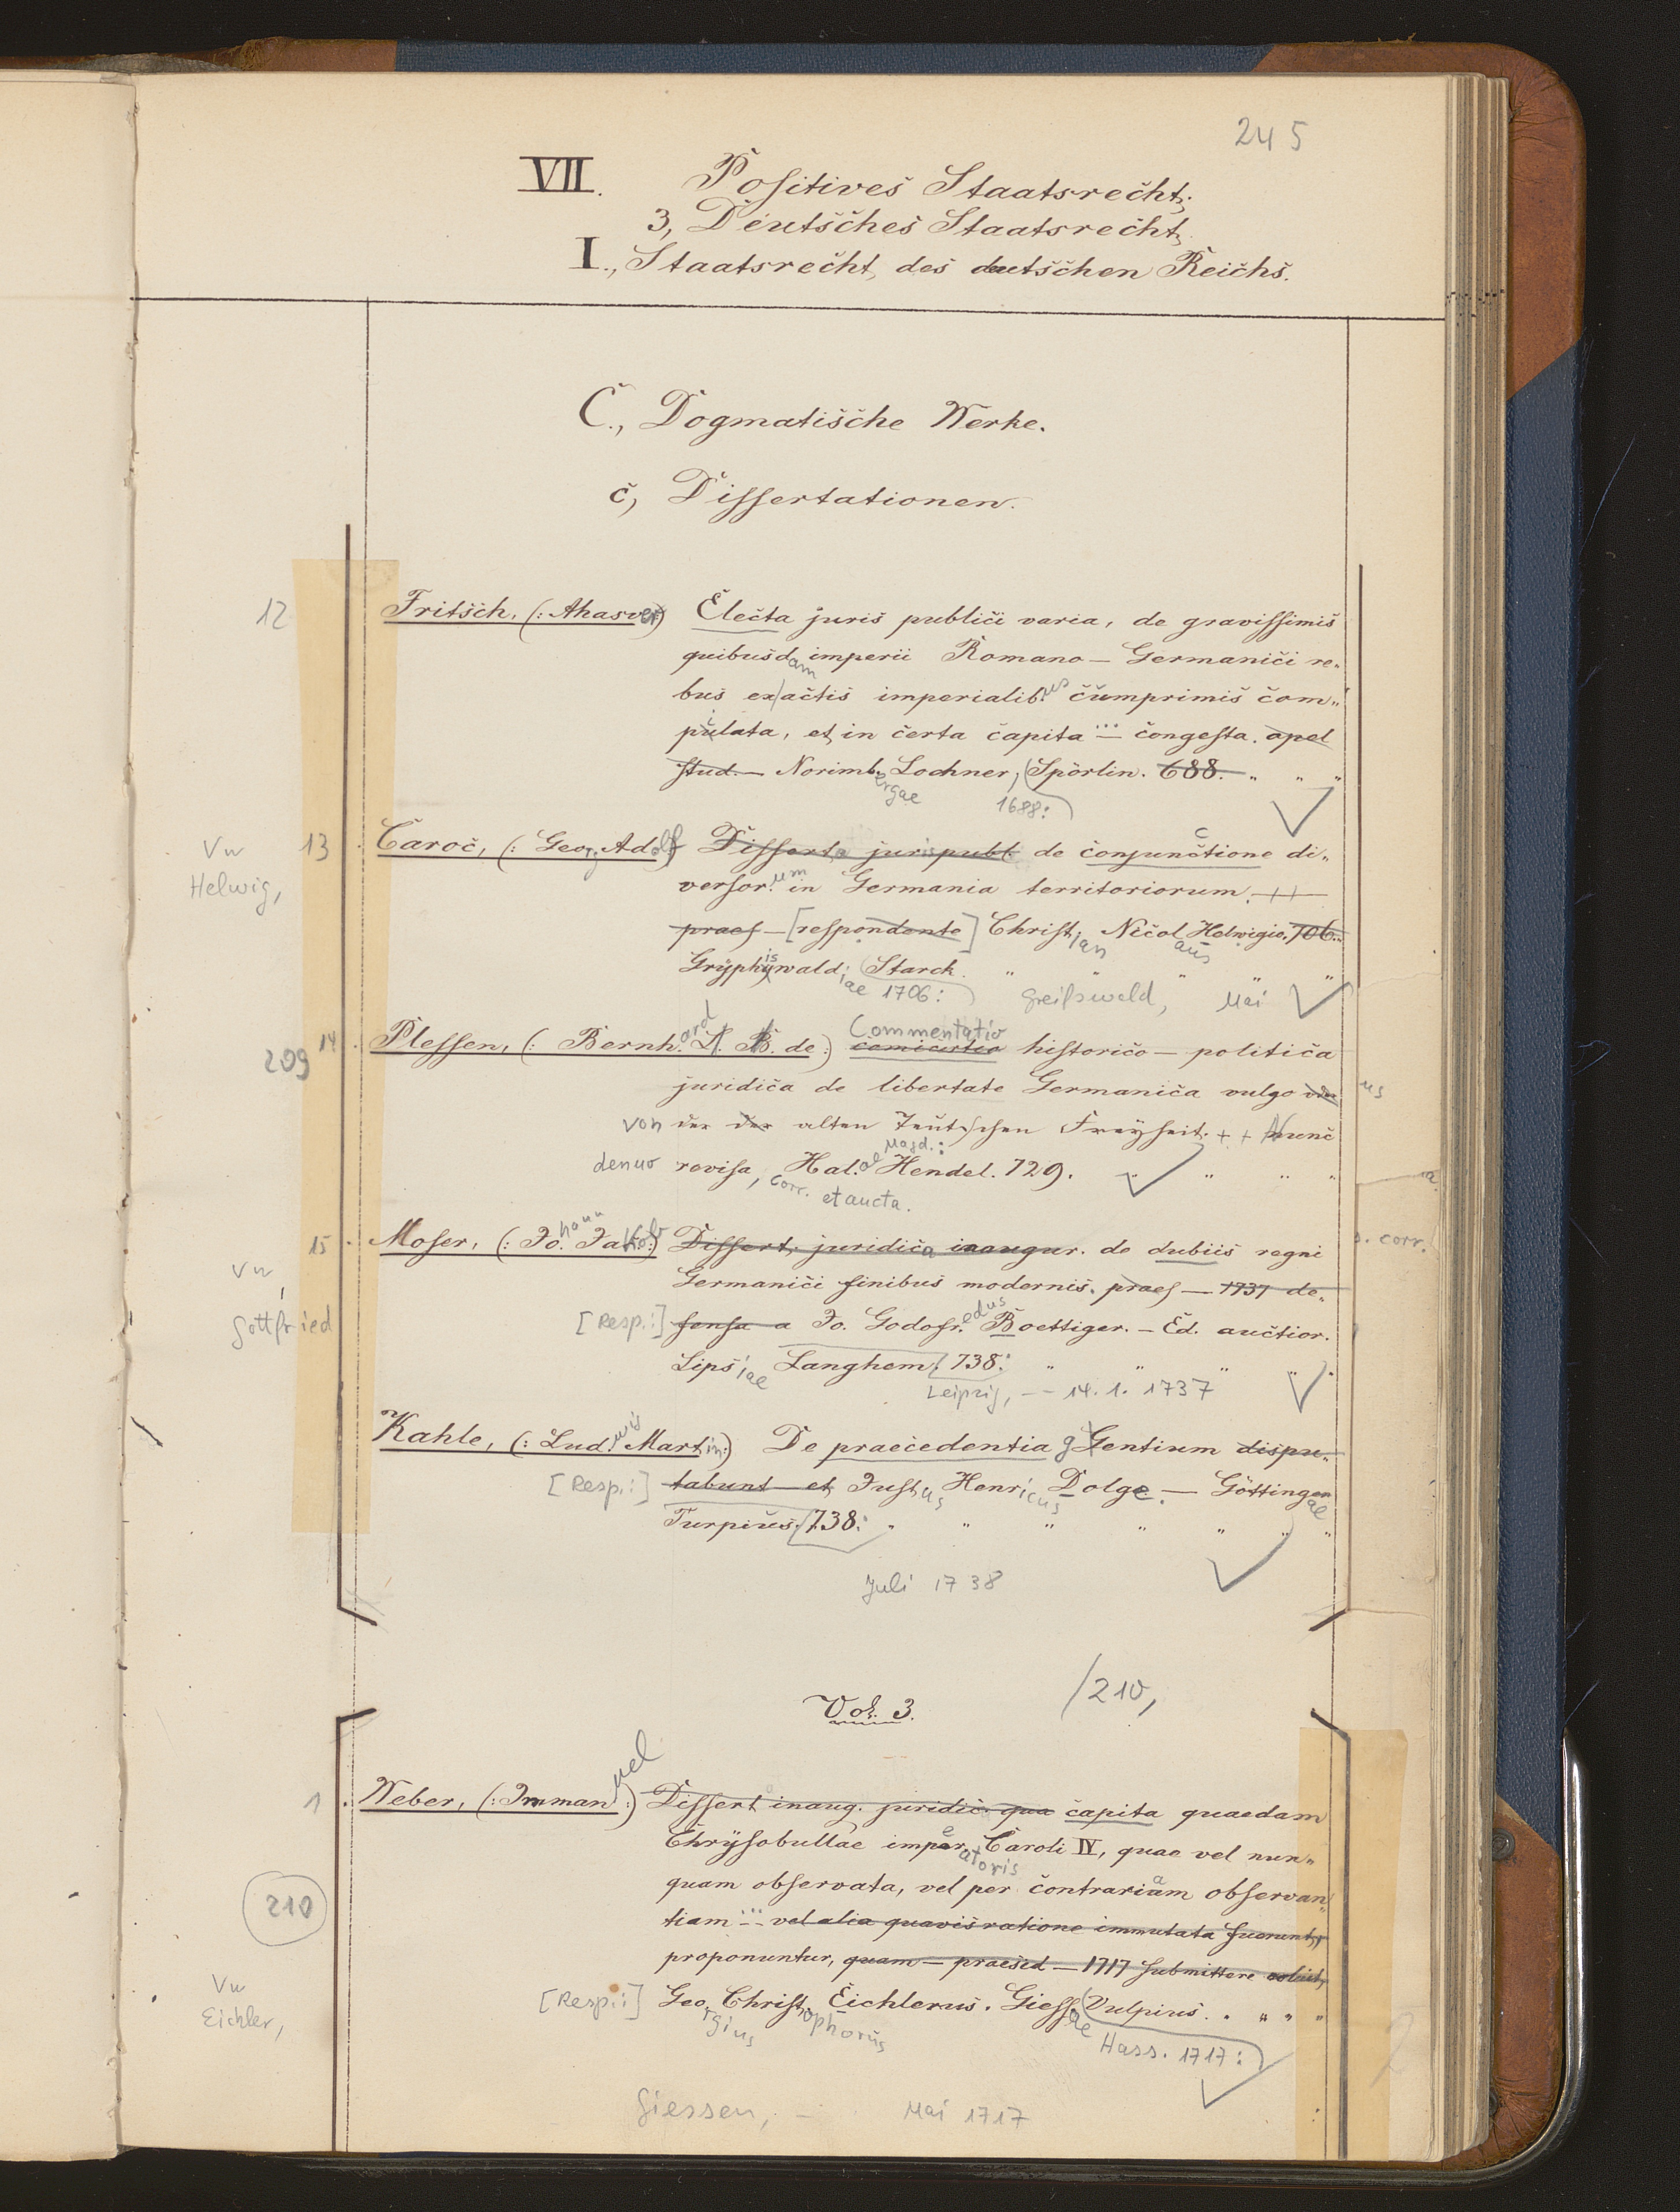 245
VII. Positives Staatsrecht;
3, Deutsches Staatsrecht;
I., Staatsrecht des deutschen Reichs.
C., Dogmatische Werke.
c, Dissertationen.
12 Fritsch, (: Ahasver) Electa juris publici varia, de gravissimis
quibusdam imperii Romano - Germanici re„
bus ex actis imperialibus cumprimis com„
pilata, et in certa capita ... — congesta. opel
stud. — Norimbergae Lochner, (Spörlin. 688. „ „ „
1688:)
Vn Helwig, 13 Caroc, (: Georg Adolf) Dissert. juris publ. de Conjunctione di„
versorum in Germania territoriorum. ++
praes — [respondente] Christian Nicolaus Helwigio. 706.
Gryphiswaldiae, (Starck. „ „ „ „ „
1706:) Greifswald, Mai
209 14 Plessen, (: Bernhard L. B. de:) Commentatio historico - politica
juridica de libertate Germanica vulgo
von der der alten Teutschen Freyheit. + + Nunc
denuo revisa, corr. et aucta. Hal. Magd.: Hendel. 729. „ „ „ „
us
a.
o. corr.
15 Moser, (: Johann Jakob:) Dissert. juridica inaugur. de dubiis regni
Germanici finibus modernis. praes — 1737 de„
Vn Gottfried
[Resp.:] fensa a Jo. Godofredus Boettiger. — Ed. auctior.
Lipsiae Langhem: 738: „ „ „ „ „
Leipzig, -- 14. 1. 1737
Kahle, (: Ludwig Martin:) De praecedentia gentium dispu„
[Resp.:] tabunt et Justus Henricus Dolge. — Göttingae
Turpius. 738: „ „ „ „ „ „ „
Juli 1738
Vol. 3. /210,
1 Weber, (: Immanuel:) Dissert. inaug. juridic. qua capita quaedam
Chrysobullae imperatoris Caroli IV, quae vel nun„
quam observata, vel per contrariam observan„
210
tiam ... — vel alia quavis ratione immutata fuerunt,
proponuntur, quam — praesid — 1717 submittere voluit,
Vn Eichler,
[Resp.:] Georgius Christophorus Eichlerus. Giessae (Vulpius. „ „ „ „
Hass. 1717:)
Giessen, - Mai 1717
2